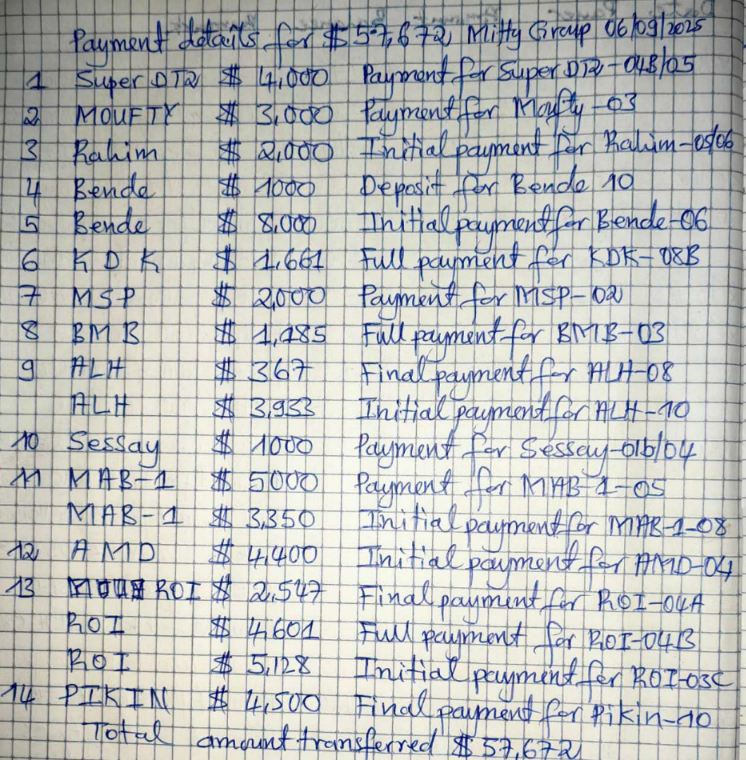 Payment details for $57,672, Mitty Group 06/09/2025
1 Super DT2 $ 4,000 Payment for Super DT2-04B/05
2 MOUFTY $ 3,000 Payment for Moufty-03
3 Rahim $ 2,000 Initial payment for Rahim-05/06
4 Bende $ 1000 Deposit for Bende 10
5 Bende $ 8,000 Initial payment for Bende-06
6 KDK $ 1,661 Full payment for KDK-08B
7 MSP $ 2,000 Payment for MSP-02
8 BMB $ 1,185 Full payment for BMB-03
9 ALH $ 367 Final payment for ALH-08
ALH $ 3,933 Initial payment for ALH-10
10 Sessay $ 1000 Payment for Sessay-01b/04
11 MAB-1 $ 5000 Payment for MAB-1-05
MAB-1 $ 3,350 Initial payment for MAB-1-08
12 AMD $ 4,400 Initial payment for AMD-04
13 ROI $ 2,547 Final payment for ROI-04A
ROI $ 4,601 Full payment for ROI-04B
ROI $ 5,128 Initial payment for ROI-03C
14 PIKIN $ 4,500 Final payment for Pikin-10
Total amount transferred $57,672